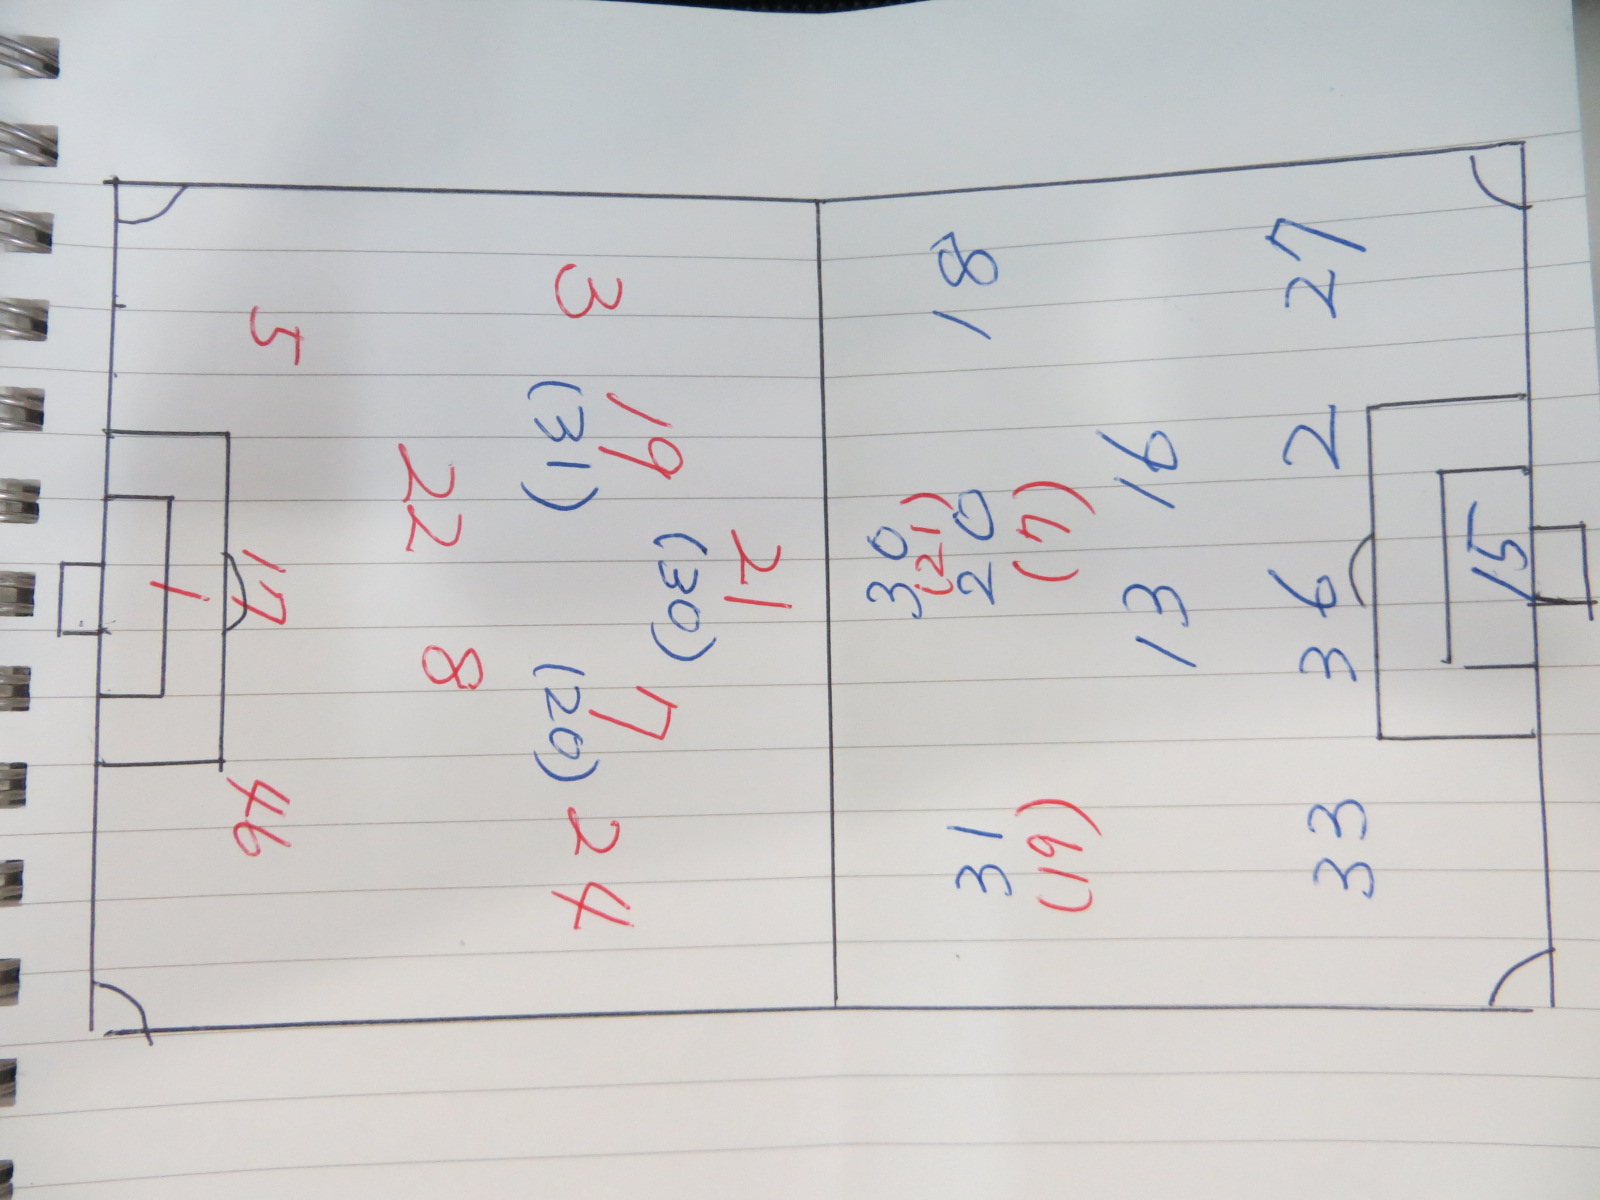 21
(30)
19 7
3 (31) (20) 24
22 8
5 17 46
1
30
(21)
31 20 18
(19) (7)
13 16
33 36 2 27
15